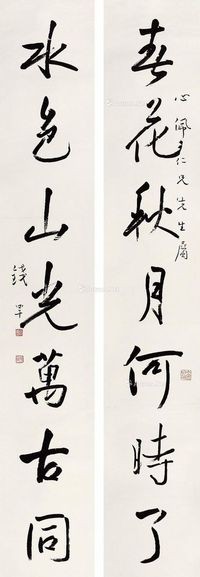 春花秋月何時了
心佩仁兄先生屬
水色山光萬古同